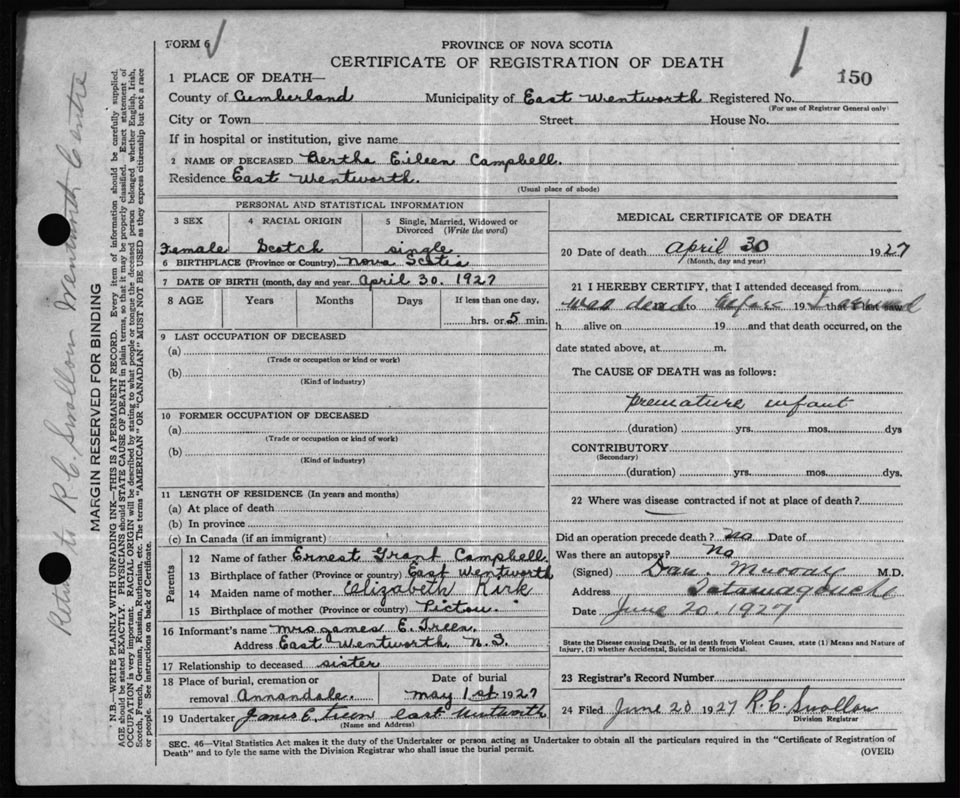 FORM 6
PROVINCE OF NOVA SCOTIA
CERTIFICATE OF REGISTRATION OF DEATH
150
1 PLACE OF DEATH—
County of Cumberland Municipality of East Wentworth Registered No.
(For use of Registrar General only)
City or Town Street House No.
If in hospital or institution, give name
2 NAME OF DECEASED Bertha Eileen Campbell.
Residence East Wentworth.
(Usual place of abode)
PERSONAL AND STATISTICAL INFORMATION
3 SEX 4 RACIAL ORIGIN 5 Single, Married, Widowed or
Divorced (Write the word)
Female Scotch single
6 BIRTHPLACE (Province or Country) Nova Scotia
7 DATE OF BIRTH (month, day and year April 30. 1927
8 AGE Years Months Days If less than one day,
hrs. or 5 min.
9 LAST OCCUPATION OF DECEASED
(a)
(Trade or occupation or kind or work)
(b)
(Kind of industry)
10 FORMER OCCUPATION OF DECEASED
(a)
(Trade or occupation or kind of work)
(b)
(Kind of industry)
11 LENGTH OF RESIDENCE (In years and months)
(a) At place of death
(b) In province
(c) In Canada (if an immigrant)
Parents
12 Name of father Ernest Grant Campbell
13 Birthplace of father (Province or country) East Wentworth
14 Maiden name of mother Elizabeth Kirk
15 Birthplace of mother (Province or country) Pictou.
16 Informant's name Mrs James E. Treen
Address East Wentworth N.S.
17 Relationship to deceased sister
18 Place of burial, cremation or Date of burial
removal Annandale. may 1st 1927
19 Undertaker James E. Treen East Wentworth
(Name and Address)
MEDICAL CERTIFICATE OF DEATH
20 Date of death April 30 1927
(Month, day and year)
21 I HEREBY CERTIFY, that I attended deceased from
was dead to before 19 I that I last saw
h alive on 19 and that death occurred, on the
date stated above, at m.
The CAUSE OF DEATH was as follows:
premature infant
(duration) yrs. mos. dys
CONTRIBUTORY
(Secondary)
(duration) yrs. mos. dys.
22 Where was disease contracted if not at place of death?
Did an operation precede death? No Date of
Was there an autopsy? No
(Signed) Dan. Murray M.D.
Address Tatamagouche
Date June 20. 1927
State the Disease causing Death, or in death from Violent Causes, state (1) Means and Nature of
Injury, (2) whether Accidental, Suicidal or Homicidal.
23 Registrar's Record Number
24 Filed June 20 1927 R. C. Swallow
Division Registrar
SEC. 46—Vital Statistics Act makes it the duty of the Undertaker or person acting as Undertaker to obtain all the particulars required in the "Certificate of Registration of
Death" and to fyle the same with the Division Registrar who shall issue the burial permit.
(OVER)
Return to R C. Swallow Wentworth Centre
MARGIN RESERVED FOR BINDING
N.B.—WRITE PLAINLY WITH UNFADING INK—THIS IS A PERMANENT RECORD. Every item of information should be carefully supplied.
AGE should be stated EXACTLY. PHYSICIANS should STATE CAUSE OF DEATH in plain terms, so that it may be properly classified. Exact statement of
OCCUPATION is very important. RACIAL ORIGIN will be described by stating to what people or tongue the deceased person belonged, whether English, Irish,
Scotch, French, German, Russian, Ruthenian, etc. The terms "AMERICAN" OR "CANADIAN" MUST NOT BE USED as they express citizenship but not a race
or people. See instructions on back of Certificate.